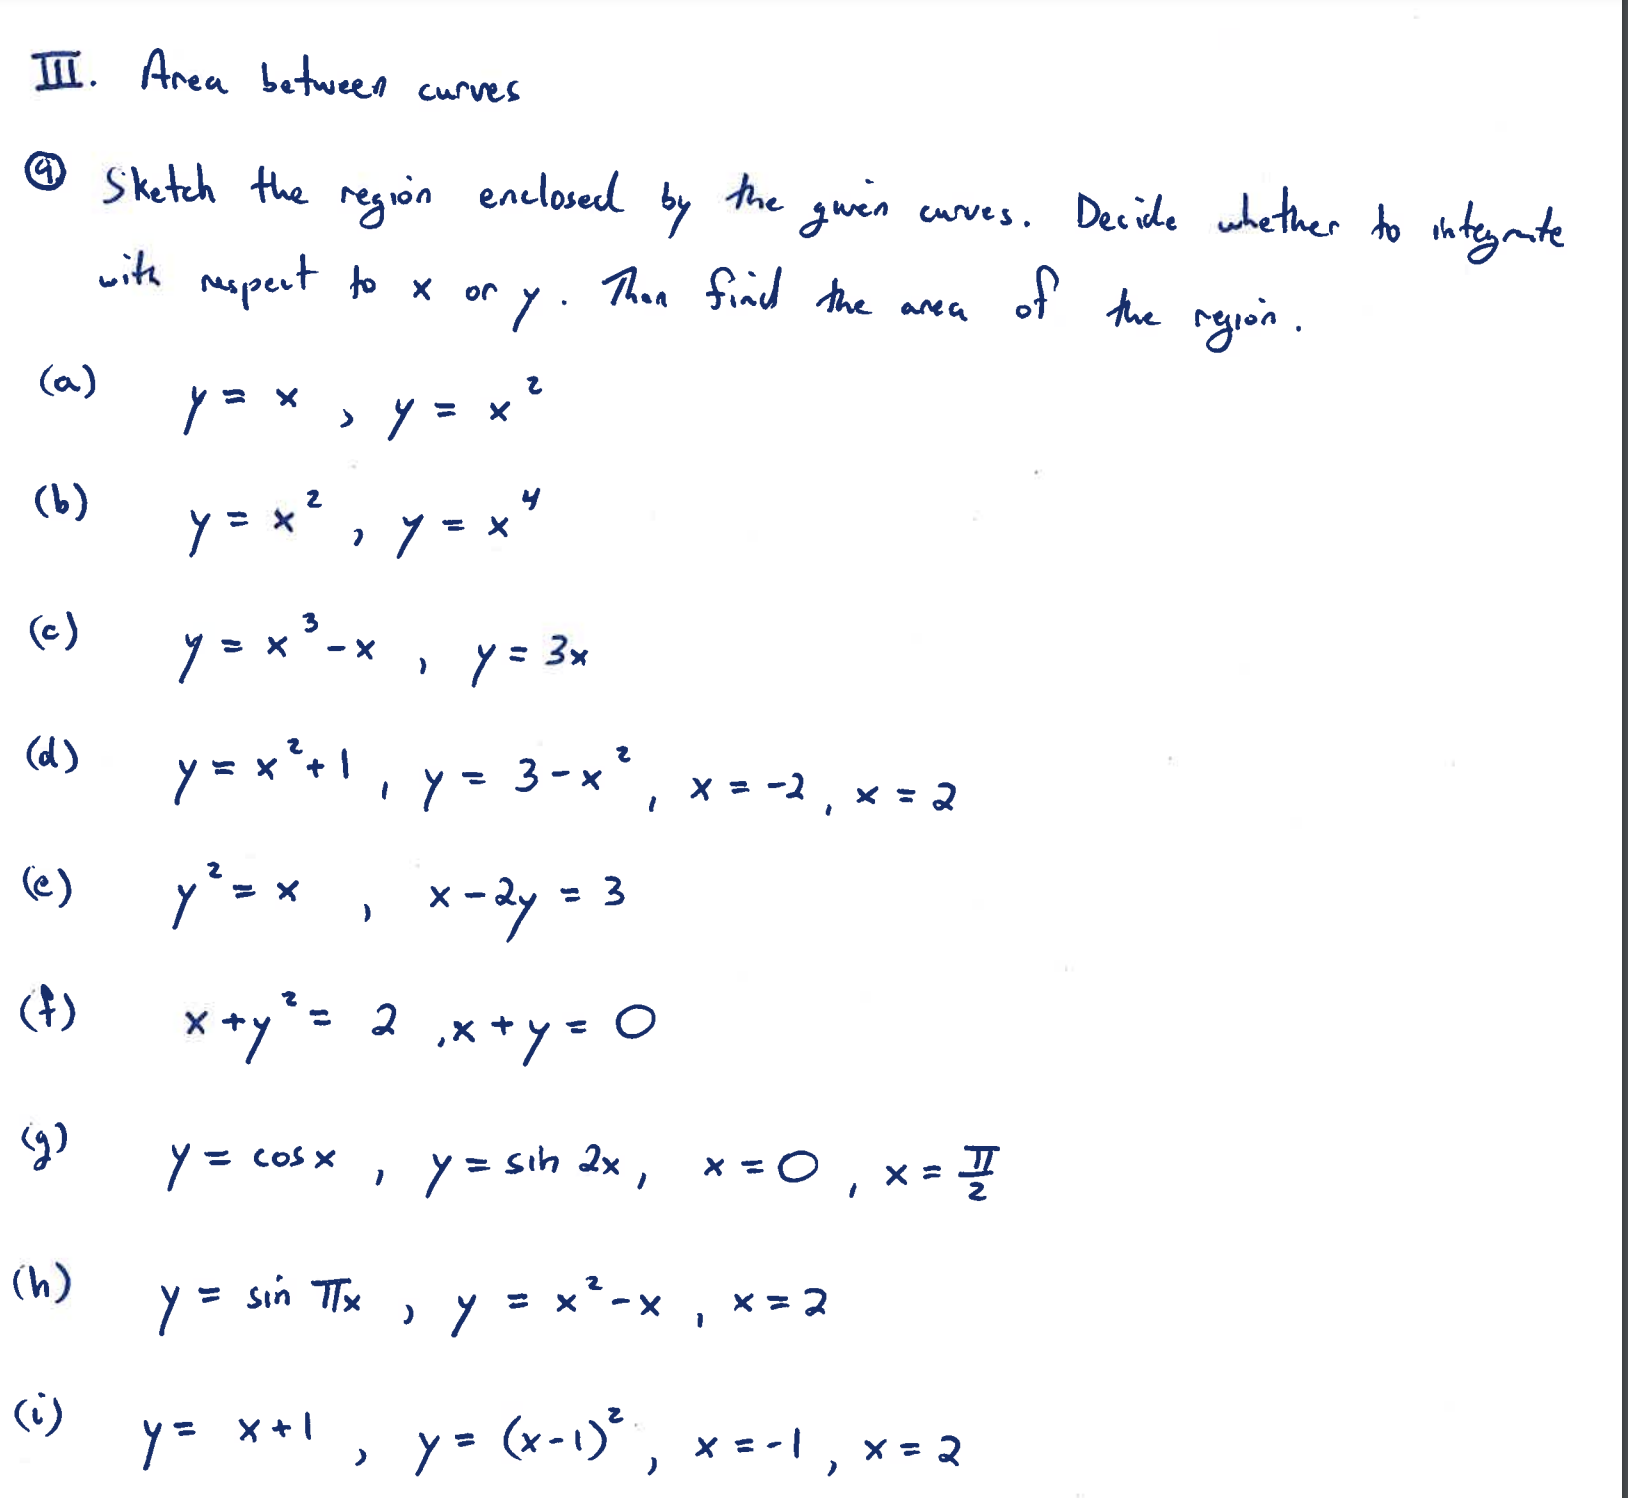 III. Area between curves
⑨ Sketch the region enclosed by the given curves. Decide whether to integrate
with respect to x or y. Then find the area of the region.
(a) y = x, y = x²
(b) y = x², y = x⁴
(c) y = x³-x, y = 3x
(d) y = x²+1, y = 3-x², x = -2, x = 2
(e) y² = x, x-2y = 3
(f) x+y² = 2, x+y = 0
(g) y = cos x, y = sin 2x, x = 0, x = π/2
(h) y = sin πx, y = x²-x, x = 2
(i) y = x+1, y = (x-1)², x = -1, x = 2